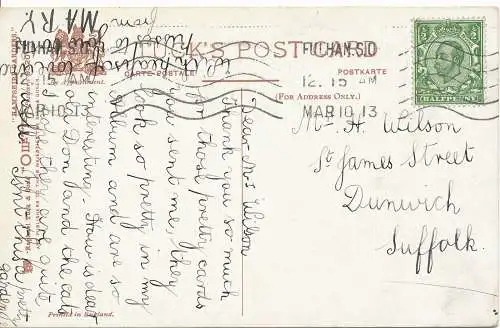 TUCK'S POSTCARD
CARTE POSTALE
POSTKARTE
(FOR ADDRESS ONLY.)
FULHAM S.D
12.15 AM
MAR 10 13
12.15 AM
MAR 10 13
HALFPENNY
Mrs H. Wilson
St James Street
Dunwich
Suffolk.
Dear Mrs Wilson
Thank you so much
for those pretty cards
you sent me, they
look so pretty in my
album and are so
interesting. How is dear
old Don and the cats
I hope they are quite
well
pretty
With kisses
from
MARY.
By Appointment.
Printed in England.